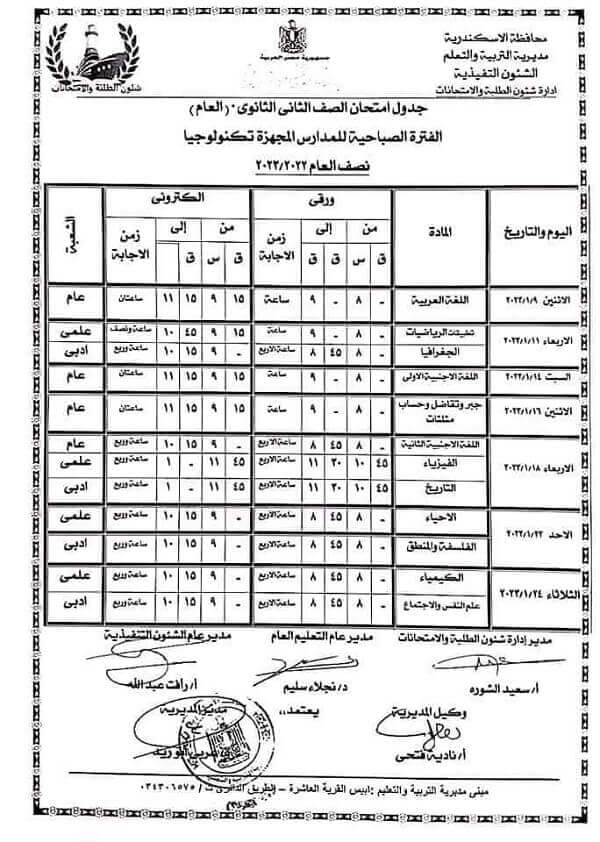 محافظة الاسكندرية
مديرية التربية والتعلم
الشئون التنفيذية
إدارة شئون الطلبة والامتحانات
جمهورية مصر العربية
شئون الطلبة والامتحانات
جدول امتحان الصف الثانى الثانوى ٠ (العام)
الفترة الصباحية للمدارس المجهزة تكنولوجيا
نصف العام ٢٠٢٣/٢٠٢٢
اليوم والتاريخ المادة ورقي الكترونى الشعبة
من إلى زمن الاجابة من إلى زمن الاجابة
ق س ق ق ق س ق
الاثنين ٢٠٢٣/١/٩ اللغة العربية - ٨ - ٩ ساعة ١٥ ٩ ١٥ ١١ ساعتان عام
الاربعاء ٢٠٢٣/١/١١ تطبيقات الرياضيات - ٨ - ٩ ساعة ١٥ ٩ ٤٥ ١٠ ساعة ونصف علمى
الجغرافيا - ٨ ٤٥ ٨ ساعة الاربع - ٩ ١٥ ١٠ ساعة وربع أدبى
السبت ٢٠٢٣/١/١٤ اللغة الاجنبية الاولى - ٨ - ٩ ساعة ١٥ ٩ ١٥ ١١ ساعتان عام
الاثنين ٢٠٢٣/١/١٦ جبر وتفاضل وحساب مثلثات - ٨ - ٩ ساعة ١٥ ٩ ١٥ ١١ ساعتان عام
الاربعاء ٢٠٢٣/١/١٨ اللغة الاجنبية الثانية - ٨ ٤٥ ٨ ساعة الاربع - ٩ ١٥ ١٠ ساعة وربع عام
الفيزياء ٤٥ ١٠ ٣٠ ١١ ساعة الاربع ٤٥ ١١ - ١ ساعة وربع علمى
التاريخ ٤٥ ١٠ ٣٠ ١١ ساعة الاربع ٤٥ ١١ - ١ ساعة وربع أدبى
الاحد ٢٠٢٣/١/٢٢ الاحياء - ٨ ٤٥ ٨ ساعة الاربع - ٩ ١٥ ١٠ ساعة وربع علمى
الفلسفة والمنطق - ٨ ٤٥ ٨ ساعة الاربع - ٩ ١٥ ١٠ ساعة وربع أدبى
الثلاثاء ٢٠٢٣/١/٢٤ الكيمياء - ٨ ٤٥ ٨ ساعة الاربع - ٩ ١٥ ١٠ ساعة وربع علمى
علم النفس والاجتماع - ٨ ٤٥ ٨ ساعة الاربع - ٩ ١٥ ١٠ ساعة وربع أدبى
مدير إدارة شئون الطلبة والامتحانات مدير عام التعليم العام مدير عام الشئون التنفيذية
أ/ سعيد الشوره د/ نجلاء سليم أ/ رافت عبدالله
وكيل المديرية يعتمد،، مدير المديرية
أ/ نادية فتحى عربى أبو زيد
مبنى مديرية التربية والتعليم : ابيس القرية العاشرة – الطريق الدائرى ت / ٠٣٤٣٠٦٥٧٥